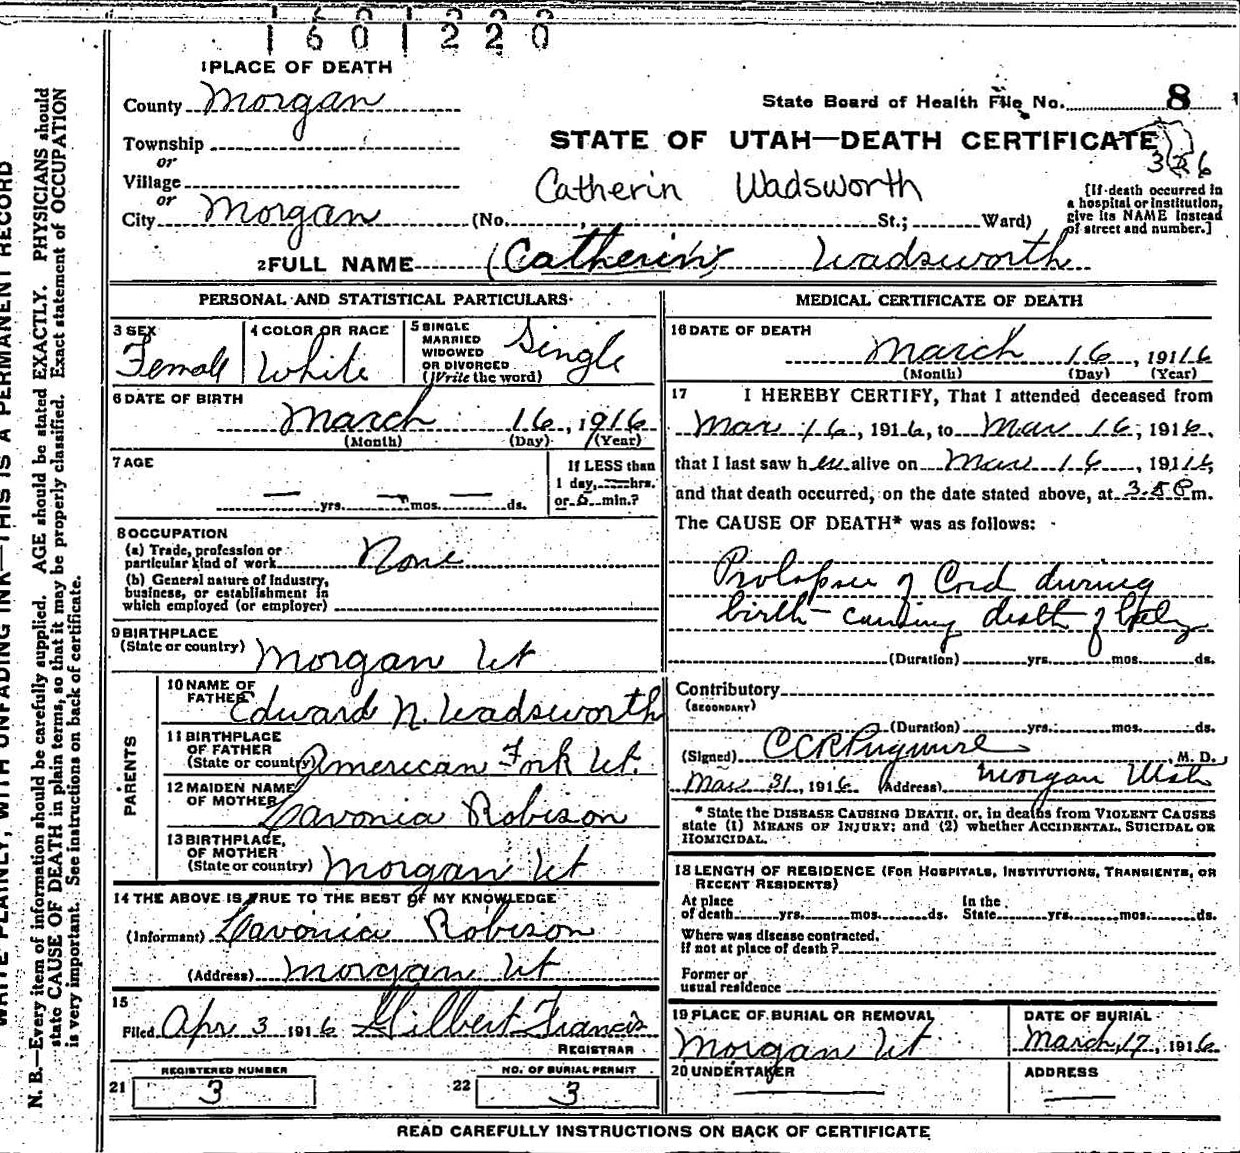 1601220
1 PLACE OF DEATH
County Morgan
State Board of Health File No. 8
Township
STATE OF UTAH—DEATH CERTIFICATE
or
Village
Catherin Wadsworth
or
City Morgan (No. St.; Ward)
[If death occurred in
a hospital or institution,
give its NAME instead
of street and number.]
2 FULL NAME (Catherin) Wadsworth
PERSONAL AND STATISTICAL PARTICULARS
3 SEX
Female
4 COLOR OR RACE
White
5 SINGLE
MARRIED
WIDOWED
OR DIVORCED
(Write the word)
Single
6 DATE OF BIRTH
March 16, 1916
(Month) (Day) (Year)
7 AGE
— yrs. — mos. — ds.
If LESS than
1 day, — hrs.
or 6 min.?
8 OCCUPATION
(a) Trade, profession or
particular kind of work None
(b) General nature of Industry,
business, or establishment in
which employed (or employer)
9 BIRTHPLACE
(State or country) Morgan Ut
PARENTS
10 NAME OF
FATHER Edward N. Wadsworth
11 BIRTHPLACE
OF FATHER
(State or country) American Fork Ut.
12 MAIDEN NAME
OF MOTHER Lavonia Robison
13 BIRTHPLACE,
OF MOTHER
(State or country) Morgan Ut
14 THE ABOVE IS TRUE TO THE BEST OF MY KNOWLEDGE
(Informant) Lavonia Robison
(Address) Morgan Ut
15
Filed Apr 3 1916 Gilbert Francis
REGISTRAR
21 REGISTERED NUMBER
3
22 NO. OF BURIAL PERMIT
3
MEDICAL CERTIFICATE OF DEATH
16 DATE OF DEATH
March 16, 1916
(Month) (Day) (Year)
17 I HEREBY CERTIFY, That I attended deceased from
Mar 16, 1916, to Mar 16, 1916,
that I last saw her alive on Mar 16, 1916,
and that death occurred, on the date stated above, at m.
The CAUSE OF DEATH* was as follows:
Prolapse of Cord during
birth - causing death of baby
(Duration) yrs. mos. ds.
Contributory
(SECONDARY)
(Duration) yrs. mos. ds.
(Signed) M. D.
Mar 31, 1916 (Address) Morgan Utah
* State the DISEASE CAUSING DEATH, or, in deaths from VIOLENT CAUSES
state (1) MEANS OF INJURY; and (2) whether ACCIDENTAL, SUICIDAL OR
HOMICIDAL.
18 LENGTH OF RESIDENCE (FOR HOSPITALS, INSTITUTIONS, TRANSIENTS, OR
RECENT RESIDENTS)
At place
of death yrs. mos. ds.
In the
State yrs. mos. ds.
Where was disease contracted,
if not at place of death?
Former or
usual residence
19 PLACE OF BURIAL OR REMOVAL
Morgan Ut
DATE OF BURIAL
March 17, 1916
20 UNDERTAKER
ADDRESS
READ CAREFULLY INSTRUCTIONS ON BACK OF CERTIFICATE
WRITE PLAINLY, WITH UNFADING INK—THIS IS A PERMANENT RECORD
N. B.—Every item of information should be carefully supplied. AGE should be stated EXACTLY. PHYSICIANS should
state CAUSE OF DEATH in plain terms, so that it may be properly classified. Exact statement of OCCUPATION
is very important. See instructions on back of certificate.